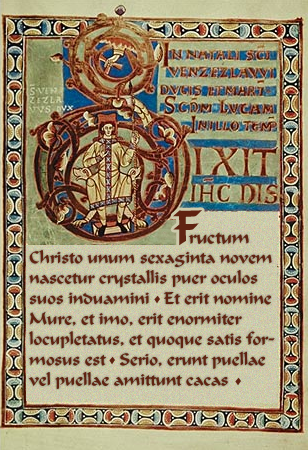 S VEN
ZIZLA
VVS DVX
IN NATALI SCI
VENZEZLAVI
DVCIS ET MART
SCDM LVCAM
IN ILLO TEMP
DIXIT
IHC DIS
Fructum
Christo unum sexaginta novem
nascetur crystallis puer oculos
suos induamini • Et erit nomine
Mure, et imo, erit enormiter
locupletatus, et quoque satis for-
mosus est • Serio, erunt puellae
vel puellae amittunt cacas •